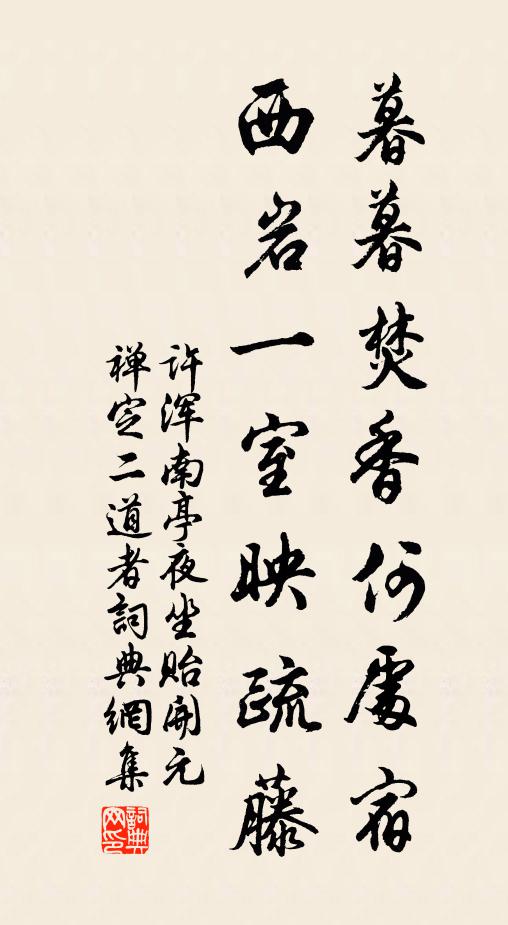 暮暮焚香何處宿
西岩一室映疏藤
许浑南亭夜坐贻開元
禅定二道者詞典網集
詞典
网印